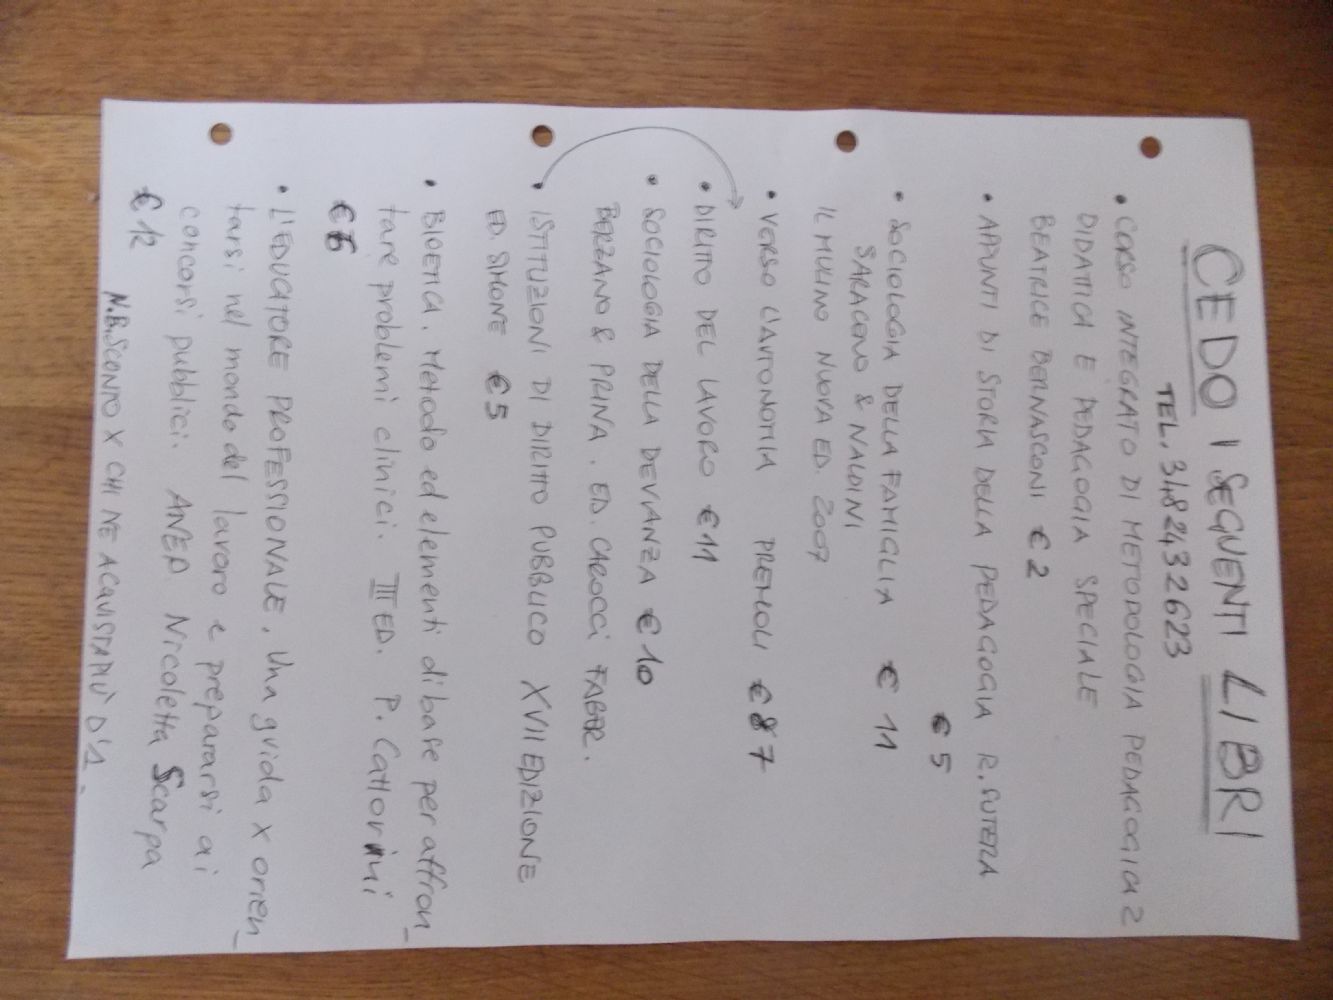 CEDO I SEGUENTI LIBRI
TEL. 3482432623
• CORSO INTEGRATO DI METODOLOGIA PEDAGOGICA 2
DIDATTICA E PEDAGOGIA SPECIALE
BEATRICE BERNASCONI € 2
• APPUNTI DI STORIA DELLA PEDAGOGIA R. SUTERA
€ 5
• SOCIOLOGIA DELLA FAMIGLIA € 11
SARACENO & NALDINI
IL MULINO NUOVA ED. 2007
• VERSO L'AUTONOMIA PREMOLI € 7
• DIRITTO DEL LAVORO € 11
• SOCIOLOGIA DELLA DEVIANZA € 10
BERZANO & PRINA. ED. CAROCCI FABER.
• ISTITUZIONI DI DIRITTO PUBBLICO XVII EDIZIONE
ED. SIMONE € 5
• BIOETICA. Metodo ed elementi di base per affron_
tare problemi clinici. III ED. P. Cattorini
€
• L'EDUCATORE PROFESSIONALE. Una guida x orien_
tarsi nel mondo del lavoro e prepararsi ai
concorsi pubblici. ANEP Nicoletta Scarpa
€ 12
N.B. SCONTO X CHI NE ACQUISTA PIÙ D'1.